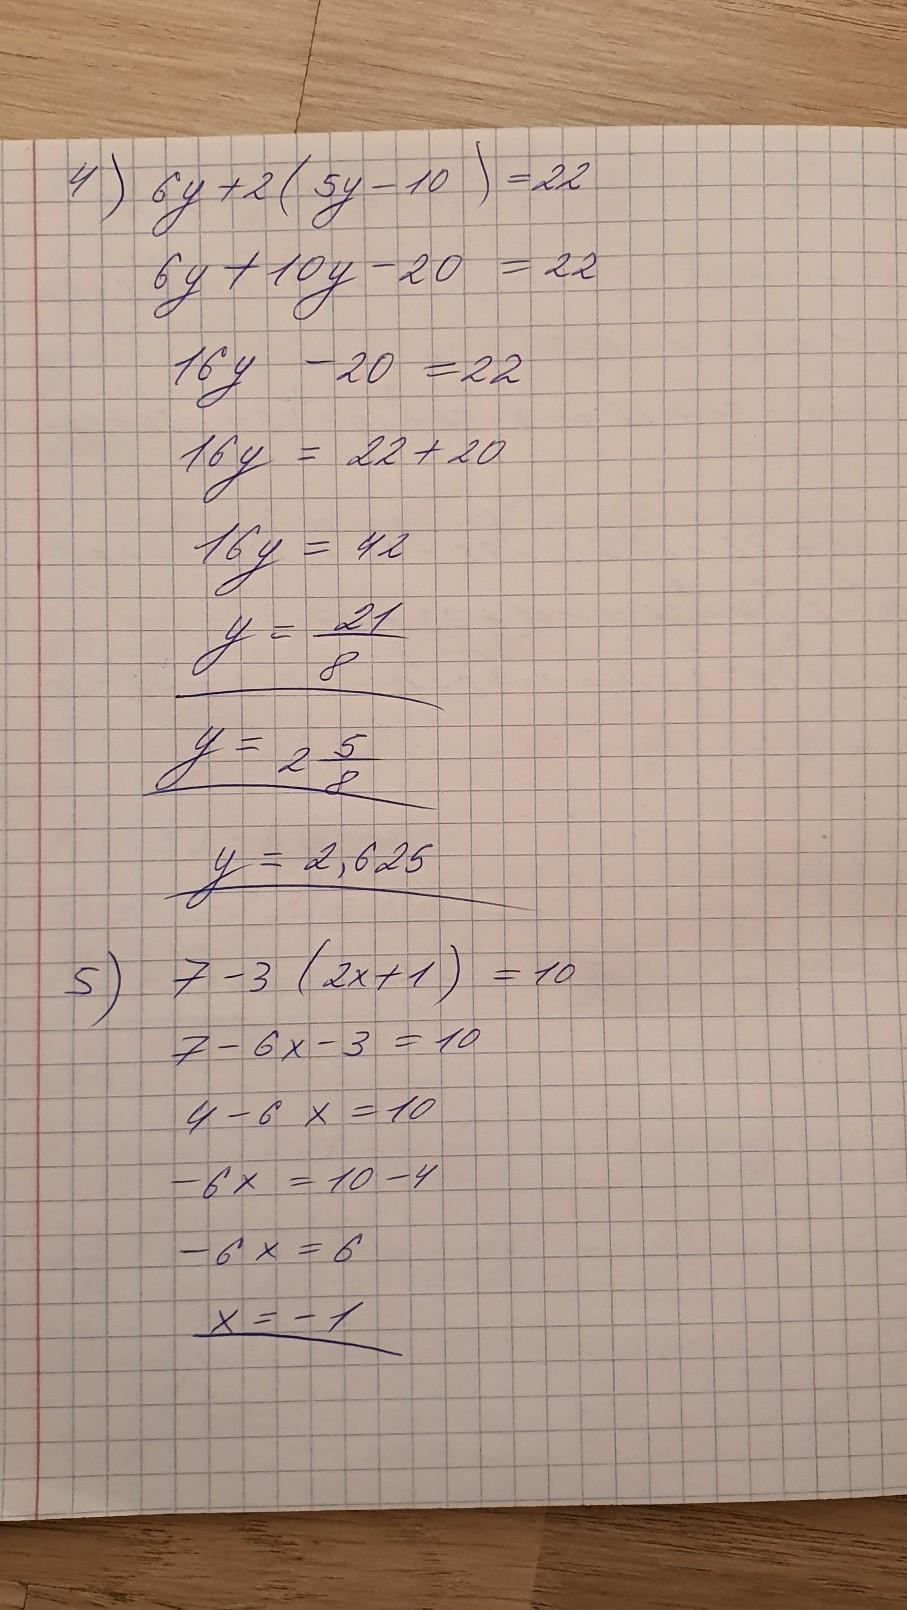 4) 6y+2(5y-10)=22
6y+10y-20 = 22
16y -20 =22
16y = 22+20
16y = 42
y = 21/8
y = 2 5/8
y = 2,625
5) 7-3 (2x+1) = 10
7-6x-3 = 10
4-6 x = 10
-6x = 10-4
-6x = 6
x = -1